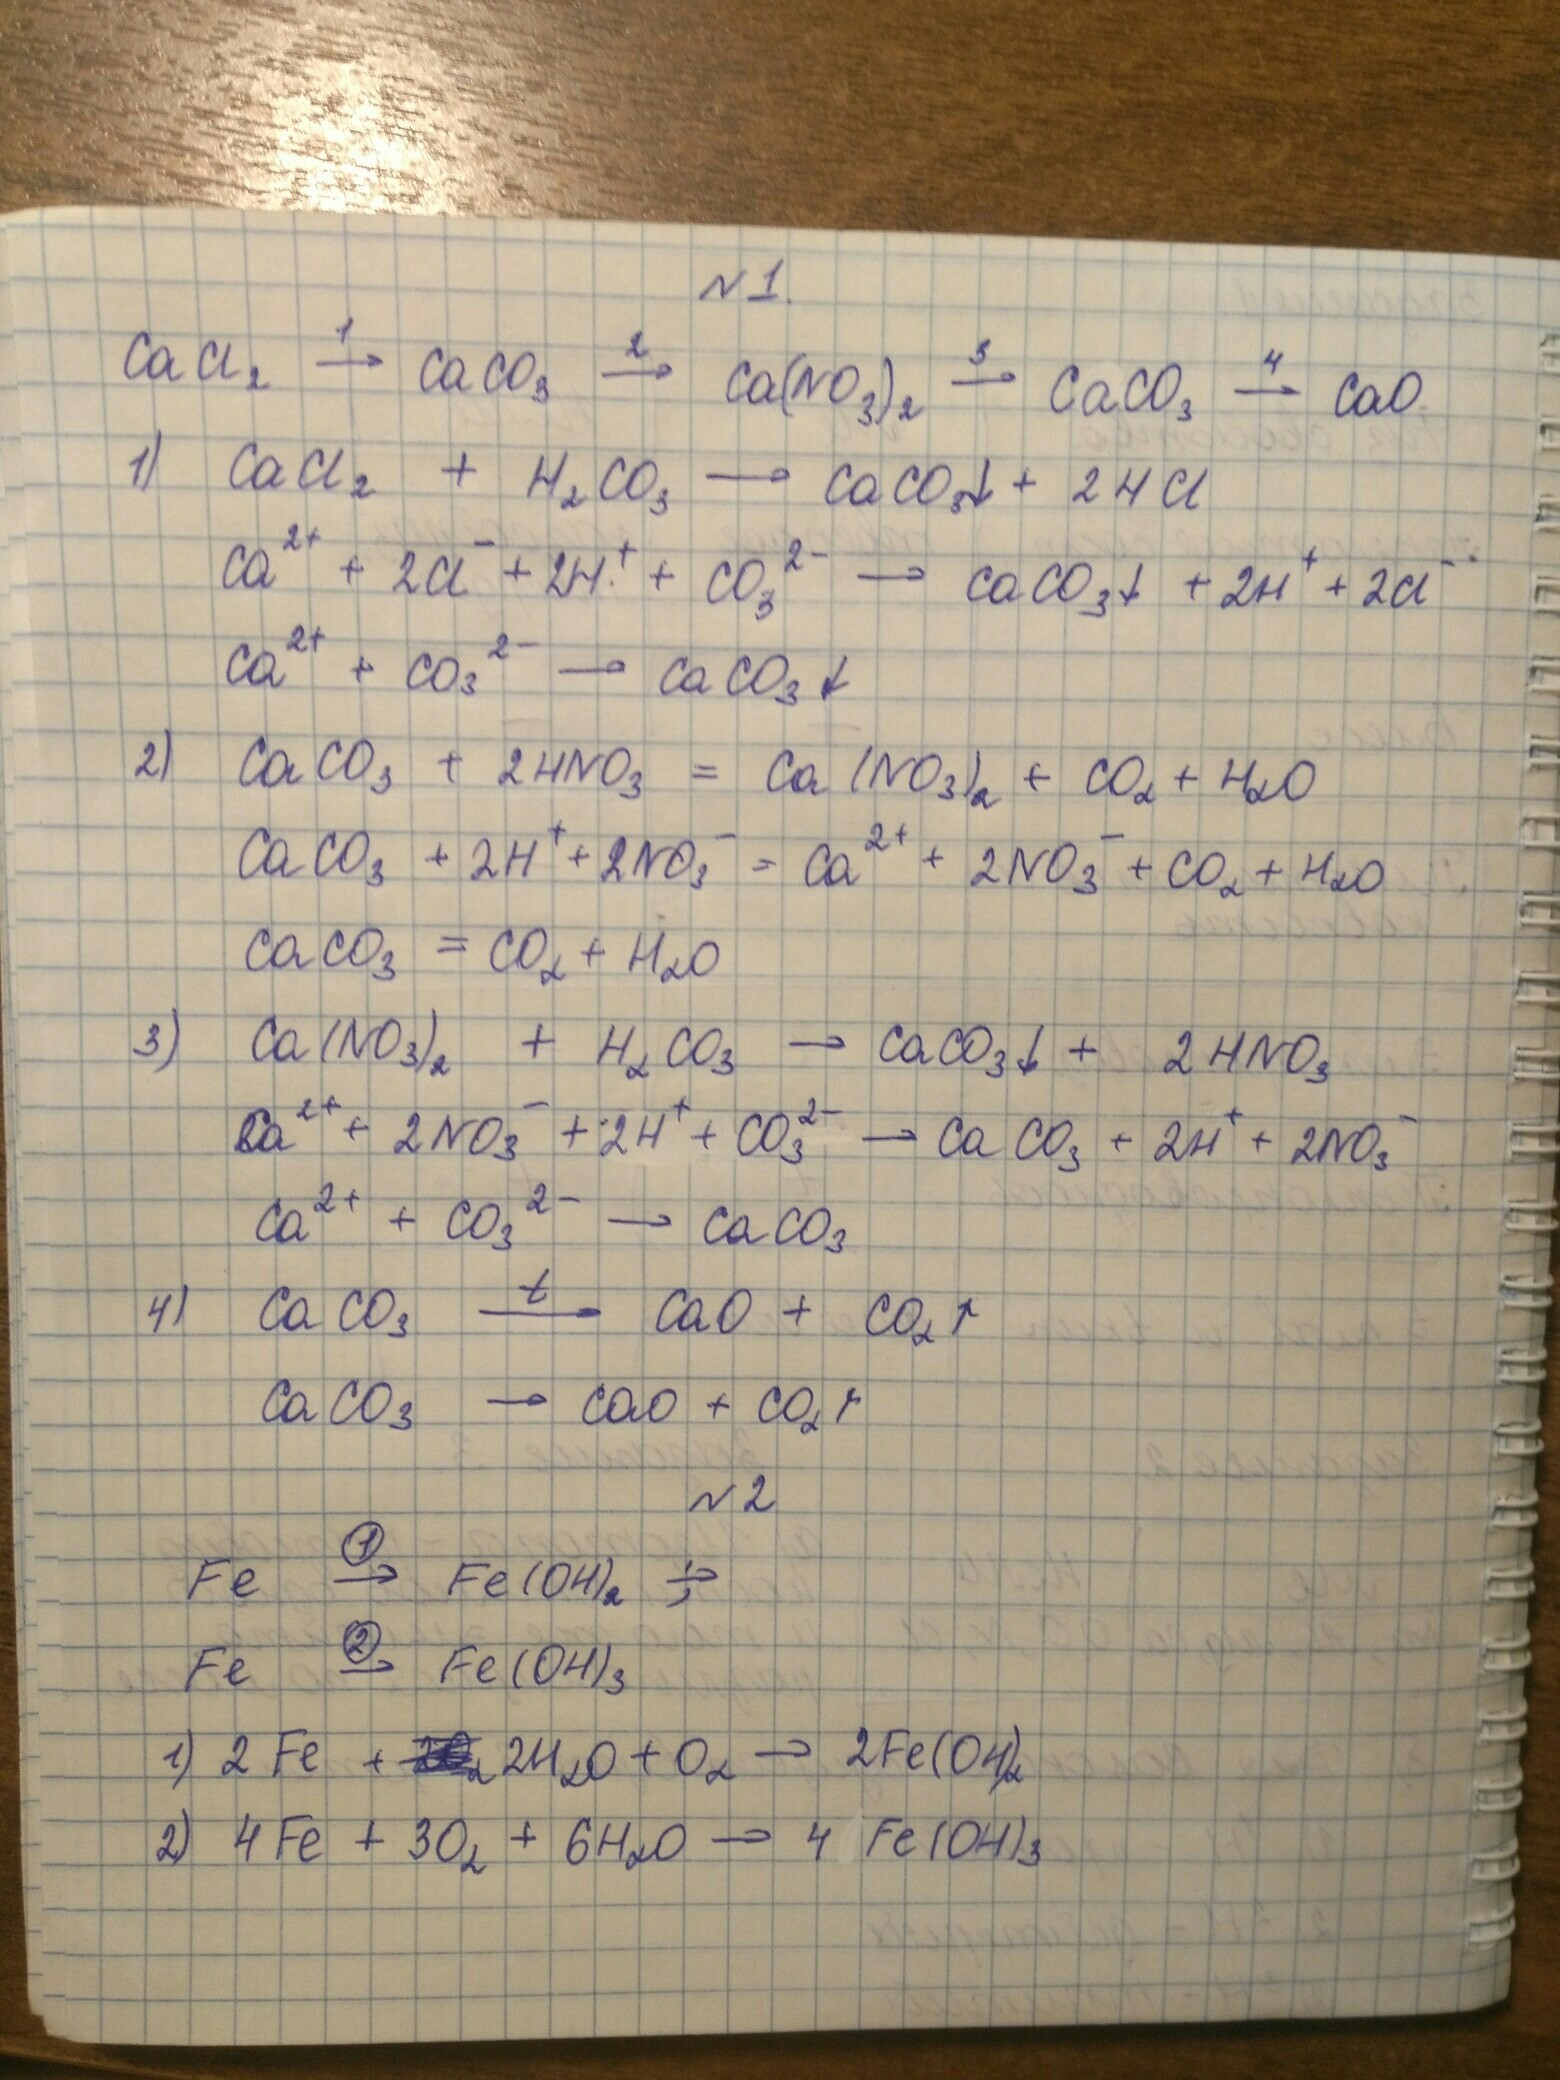 N1.
CaCl₂ →¹ CaCO₃ →² Ca(NO₃)₂ →³ CaCO₃ →⁴ CaO
1) CaCl₂ + H₂CO₃ → CaCO₃↓ + 2HCl
Ca²⁺ + 2Cl⁻ + 2H⁺ + CO₃²⁻ → CaCO₃↓ + 2H⁺ + 2Cl⁻
Ca²⁺ + CO₃²⁻ → CaCO₃↓
2) CaCO₃ + 2HNO₃ = Ca(NO₃)₂ + CO₂ + H₂O
CaCO₃ + 2H⁺ + 2NO₃⁻ = Ca²⁺ + 2NO₃⁻ + CO₂ + H₂O
CaCO₃ = CO₂ + H₂O
3) Ca(NO₃)₂ + H₂CO₃ → CaCO₃↓ + 2HNO₃
Ca²⁺ + 2NO₃⁻ + 2H⁺ + CO₃²⁻ → CaCO₃ + 2H⁺ + 2NO₃⁻
Ca²⁺ + CO₃²⁻ → CaCO₃
4) CaCO₃ →ᵗ CaO + CO₂↑
CaCO₃ → CaO + CO₂↑
N2
Fe →① Fe(OH)₂ ;
Fe →② Fe(OH)₃
1) 2Fe + 2H₂O + O₂ → 2Fe(OH)₂
2) 4Fe + 3O₂ + 6H₂O → 4Fe(OH)₃